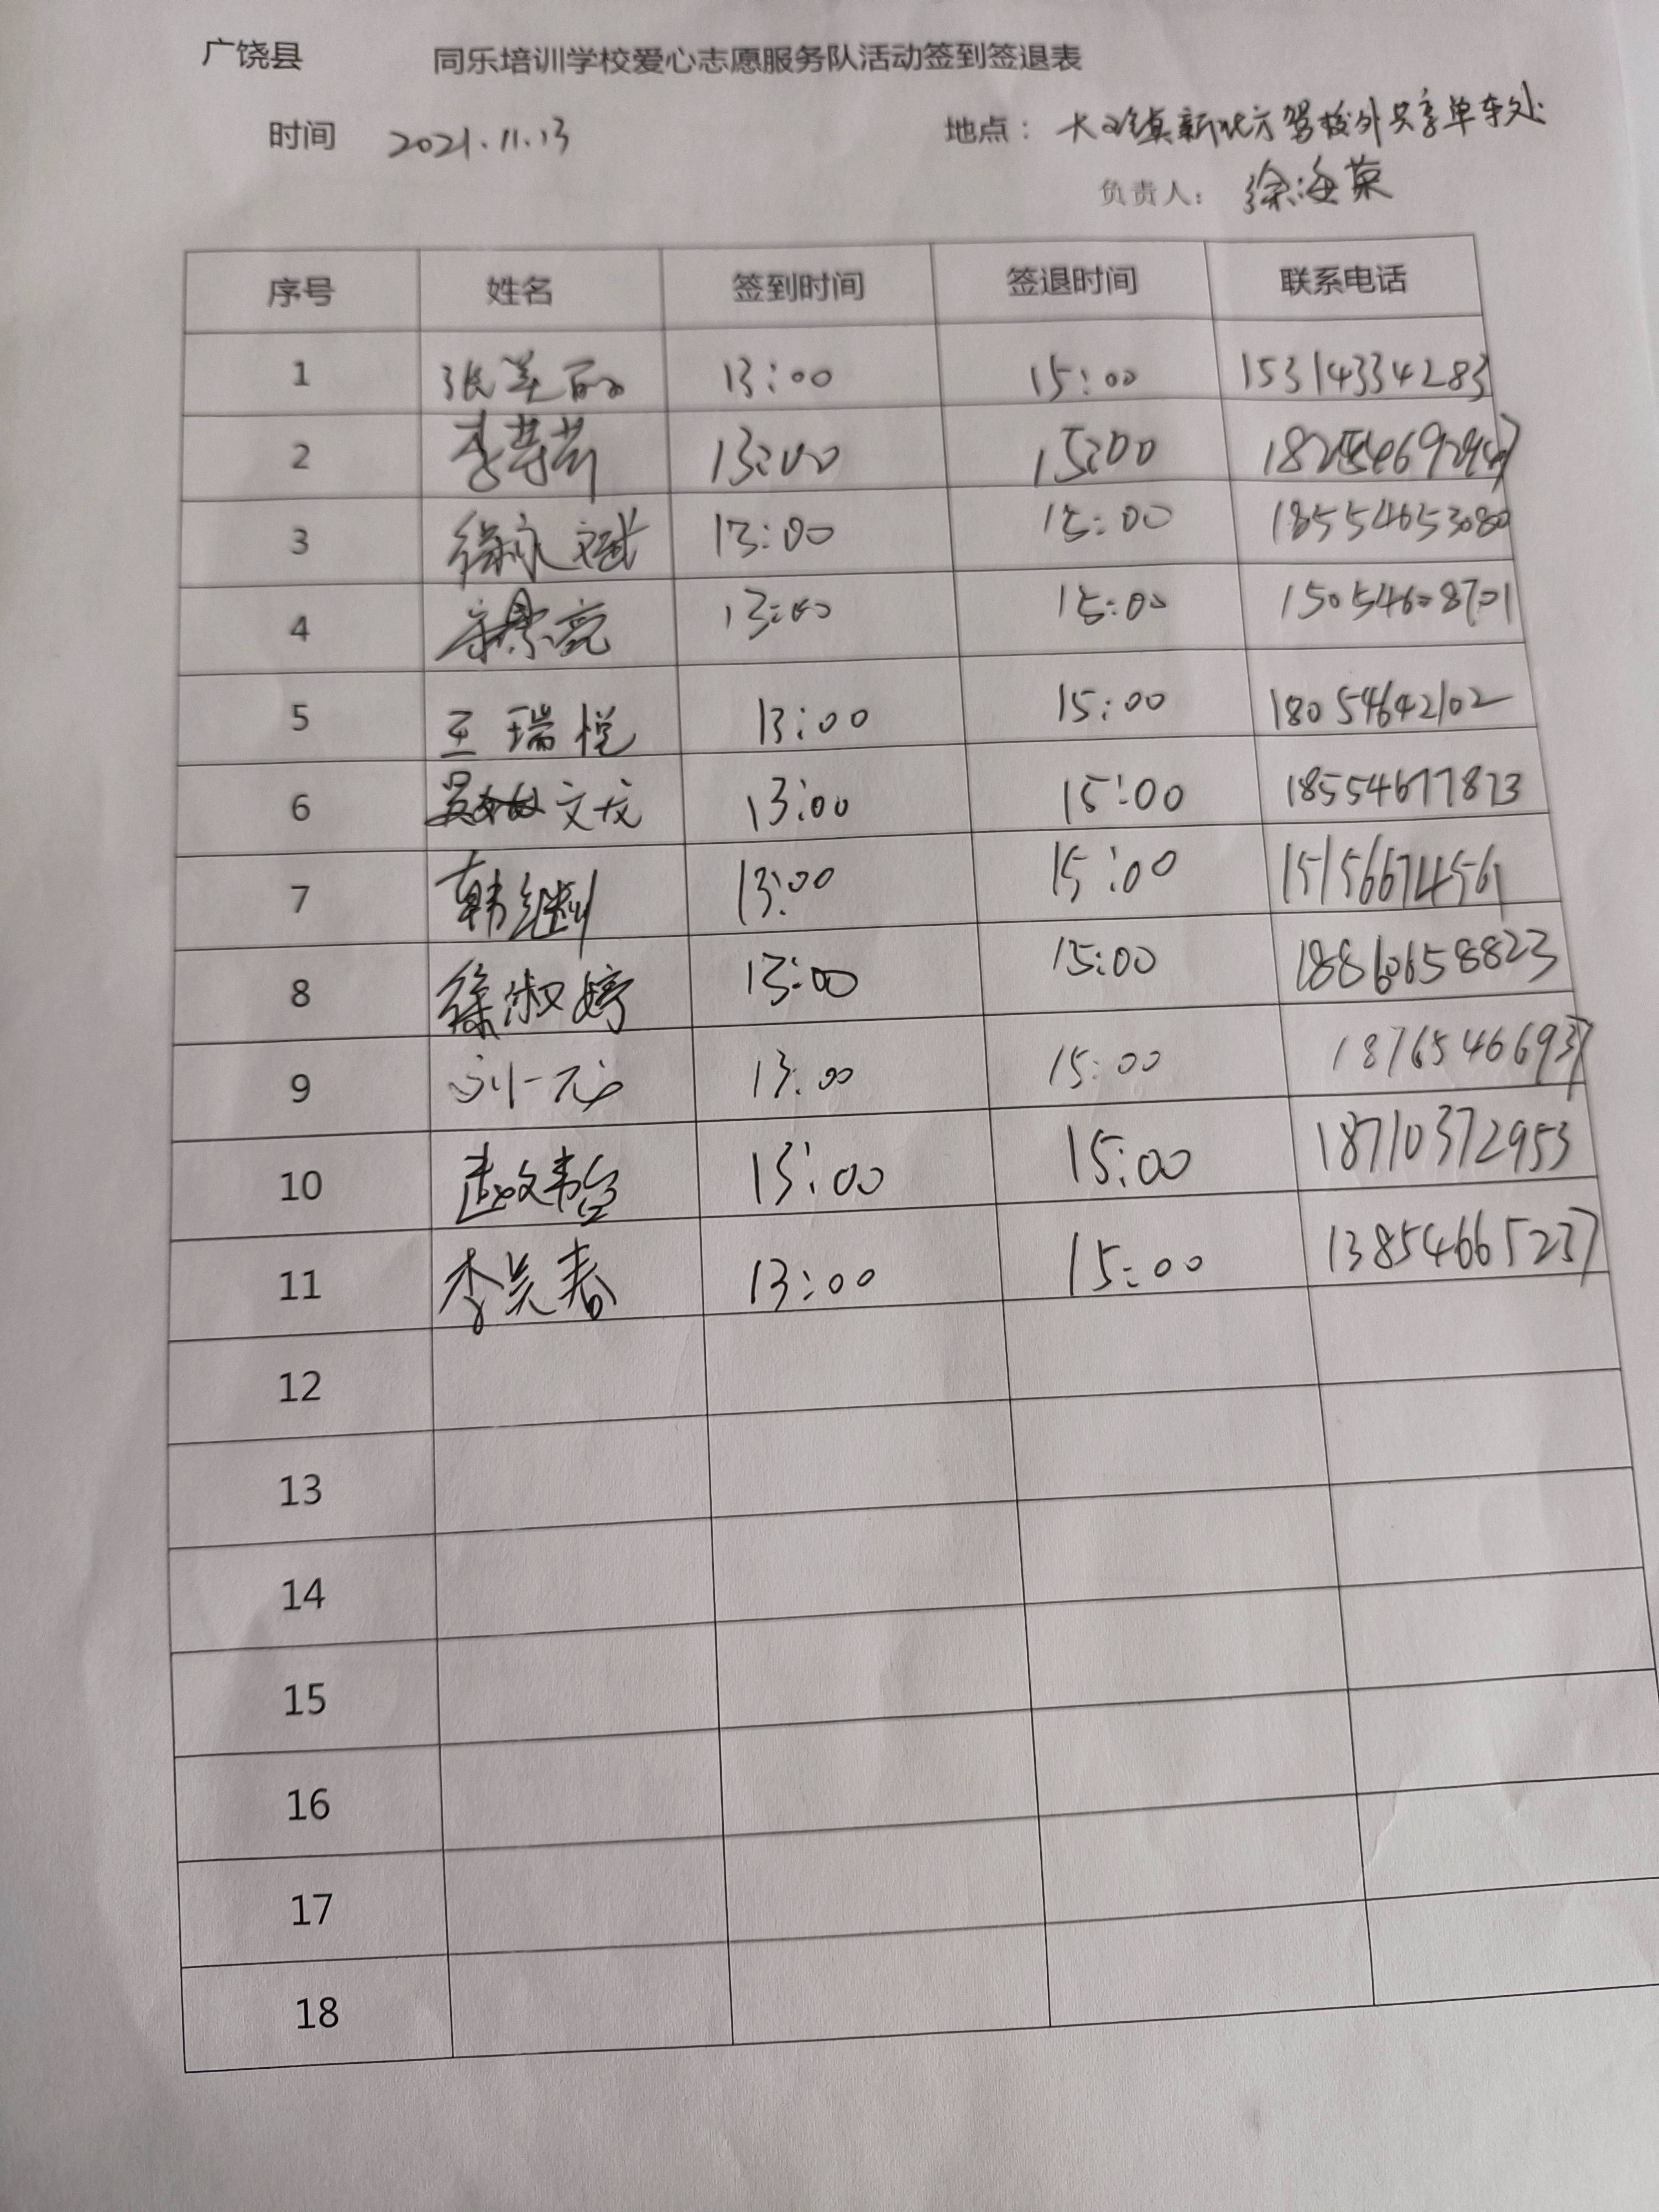 广饶县 同乐培训学校爱心志愿服务队活动签到签退表
时间 2021.11.13 地点： 大王镇新北方驾校外共享单车处
负责人： 徐海荣
序号 姓名 签到时间 签退时间 联系电话
1 张美丽 13:00 15:00 15314334283
2 13:00 15:00
3 徐永斌 13:00 15:00 18554653080
4 13:00 15:00 15054608701
5 王瑞悦 13:00 15:00 18054642102
6 文龙 13:00 15:00 18554677823
7 韩继刚 13:00 15:00 15156674561
8 徐淑婷 13:00 15:00 18860658823
9 刘一 13:00 15:00 18765466937
10 13:00 15:00 18710372953
11 李吴春 13:00 15:00 13854665237
12
13
14
15
16
17
18